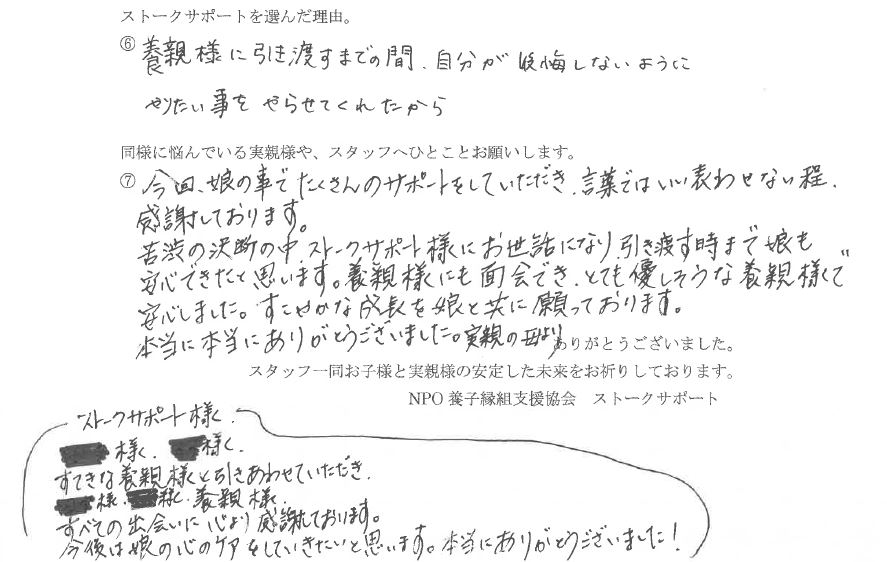 ストークサポートを選んだ理由。
⑥ 養親様に引き渡すまでの間、自分が後悔しないように
やりたい事を やらせてくれたから
同様に悩んでいる実親様や、スタッフへひとことお願いします。
⑦ 今回、娘の事でたくさんのサポートをしていただき、言葉ではいい表わせない程、
感謝しております。
苦渋の決断の中、ストークサポート様にお世話になり、引き渡す時まで娘も
安心できたと思います。養親様にも面会でき、とても優しそうな養親様で
安心しました。すこやかな成長を娘と共に願っております。
本当に本当にありがとうございました。実親の母より
ありがとうございました。
スタッフ一同お子様と実親様の安定した未来をお祈りしております。
NPO 養子縁組支援協会 ストークサポート
ストークサポート様、
様、様、
すてきな養親様と引きあわせていただき、
様、様、養親様、
すべての出会いに心より感謝しております。
今後は娘の心のケアをしていきたいと思います。本当にありがとうございました!